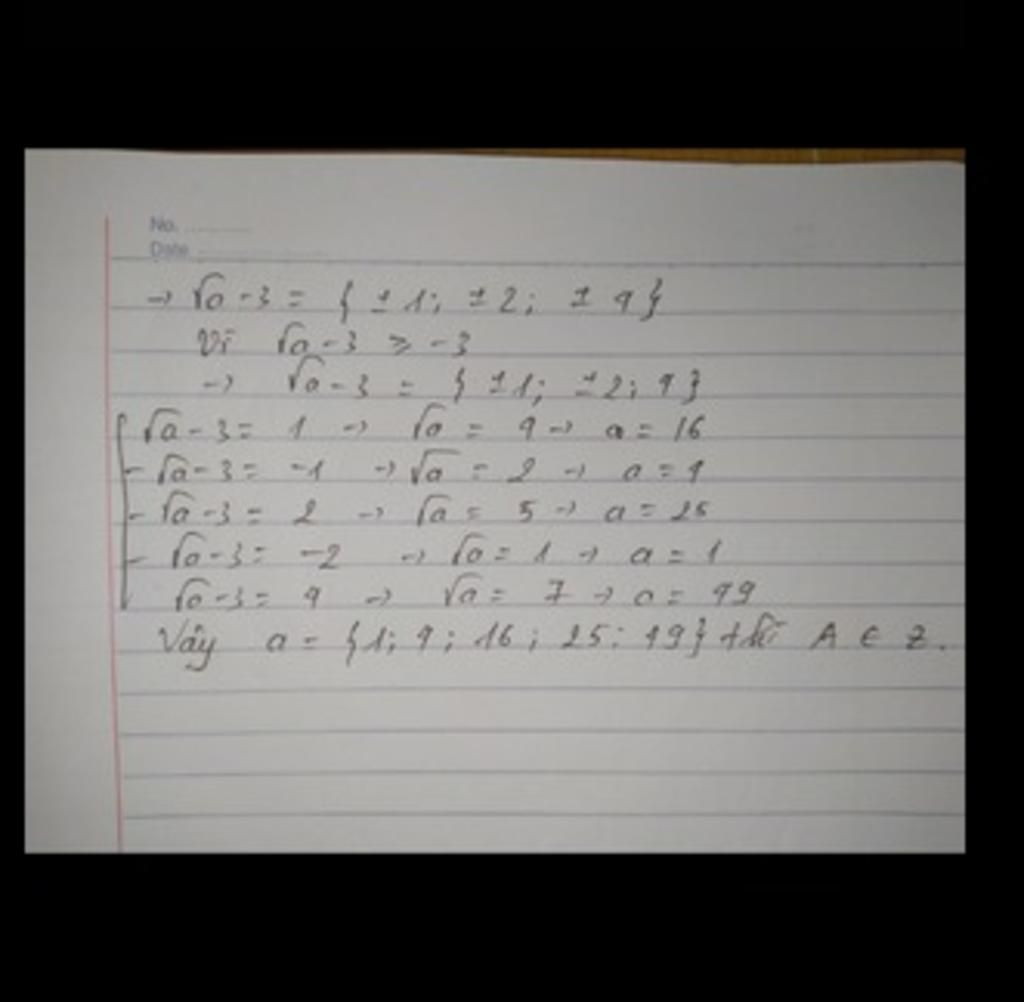 No. ............
Date ......................
→ √a - 3 = { ±1; ±2; ±4}
Vì √a - 3 ≥ -3
→ √a - 3 = { ±1; ±2; 4}
√a - 3 = 1 → √a = 4 → a = 16
- √a - 3 = -1 → √a = 2 → a = 4
- √a - 3 = 2 → √a = 5 → a = 25
- √a - 3 = -2 → √a = 1 → a = 1
√a - 3 = 4 → √a = 7 → a = 49
Vậy a = {1; 4; 16; 25; 49} thì A ∈ Z.